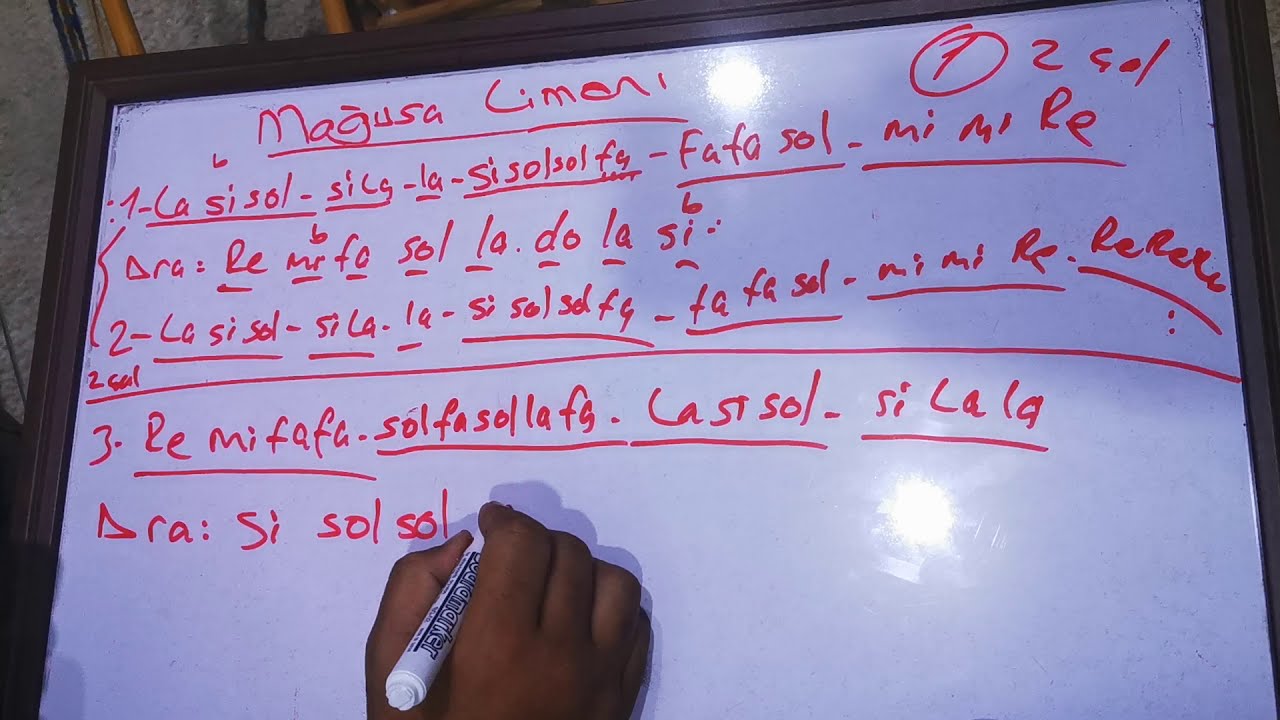 Mağusa Limanı
① 2 sol
b
:1- La si sol - si La - la - si sol sol fa - Fa fa sol - mi mi Re
b b
Ara: Re mi fa sol la. do la si:
2- La si sol - si La. la - si sol sol fa - fa fa sol - mi mi Re. Re Re Re :
2 sol
3. Re mi fa fa. sol fa sol la fa. La si sol - si La la
Ara: Si sol sol